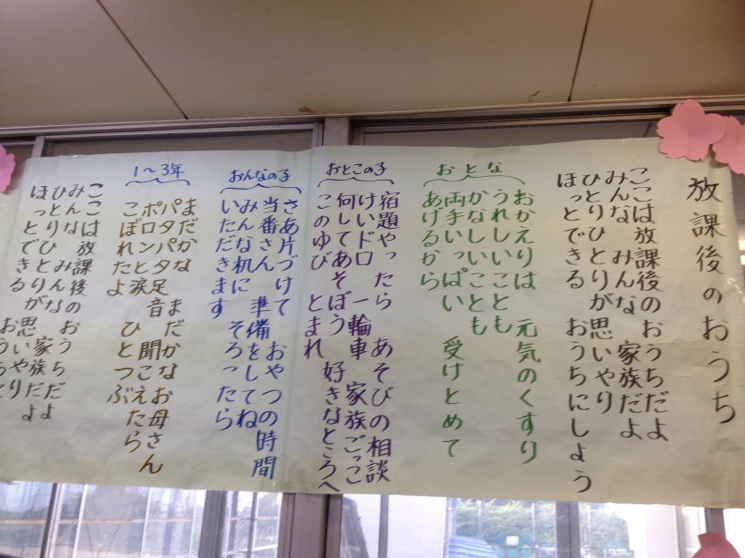 放課後のおうち
ここは放課後のおうちだよ
みんな みんな 家族だよ
ひとりひとりが思いやり
ほっとできる おうちにしよう
おとな
おかえりは 元気のくすり
うれしいことも
かなしいことも
両手いっぱい 受けとめて
あげるから
おとこの子
宿題やったら あそびの相談
けいドロ 一輪車 家族ごっこ
何してあそぼう 好きなところへ
このゆび とまれ
おんなの子
さあ片づけて おやつの時間
当番さん 準備をしてね
みんな机に そろったら
いただきます
1〜3年
まだかな まだかなお母さん
パタパタ足音 聞こえたら
ポロンと涙 ひとつぶ
こぼれたよ
ここは放課後のおうちだよ
みんな みんな 家族だよ
ひとりひとりが 思いやり
ほっとできる おうち